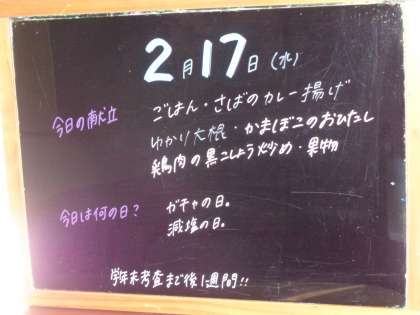 2月17日(水)
今日の献立
ごはん・さばのカレー揚げ
ゆかり大根・かまぼこのおひたし
鶏肉の黒こしょう炒め・果物
今日は何の日?
ガチャの日。
減塩の日。
学年末考査まで後1週間!!